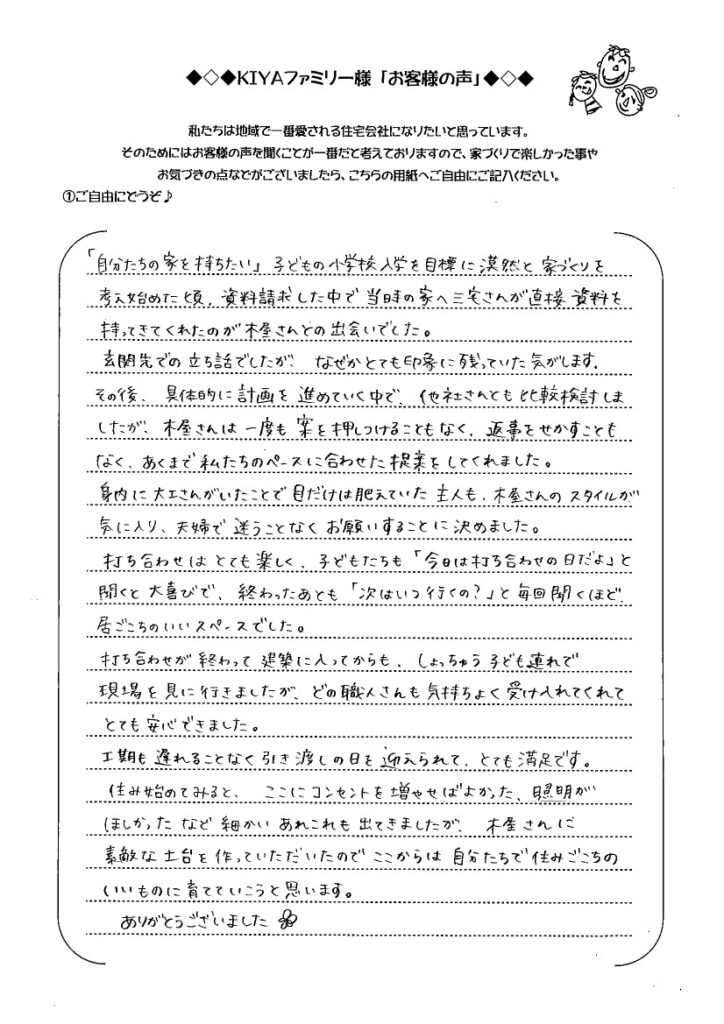 ◆◇◆KIYAファミリー様「お客様の声」◆◇◆
私たちは地域で一番愛される住宅会社になりたいと思っています。
そのためにはお客様の声を聞くことが一番だと考えておりますので、家づくりで楽しかった事や
お気づきの点などがございましたら、こちらの用紙へご自由にご記入ください。
①ご自由にどうぞ♪
「自分たちの家を持ちたい」子どもの小学校入学を目標に漠然と家づくりを
考え始めた頃、資料請求した中で当時の家へ三宅さんが直接資料を
持ってきてくれたのが木屋さんとの出会いでした。
玄関先での立ち話でしたが、なぜかとても印象に残っていた気がします。
その後、具体的に計画を進めていく中で、他社さんとも比較検討しま
したが、木屋さんは一度も案を押しつけることもなく、返事をせかすことも
なく、あくまで私たちのペースに合わせた提案をしてくれました。
身内に大工さんがいたことで目だけは肥えていた主人も、木屋さんのスタイルが
気に入り、夫婦で迷うことなくお願いすることに決めました。
打ち合わせはとても楽しく、子どもたちも「今日は打ち合わせの日だよ」と
聞くと大喜びで、終わったあとも「次はいつ行くの?」と毎回聞くほど、
居ごこちのいいスペースでした。
打ち合わせが終わって建築に入ってからも、しょっちゅう子ども連れで
現場を見に行きましたが、どの職人さんも気持ちよく受け入れてくれて
とても安心できました。
工期も遅れることなく引き渡しの日を迎えられて、とても満足です。
住み始めてみると、ここにコンセントを増やせばよかった、照明が
ほしかったなど細かいあれこれも出てきましたが、木屋さんに
素敵な土台を作っていただいたのでここからは自分たちで住みごこちの
いいものに育てていこうと思います。
ありがとうございました